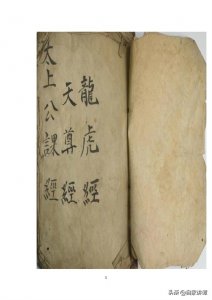 龍虎經
天尊經
太上公課經
头条